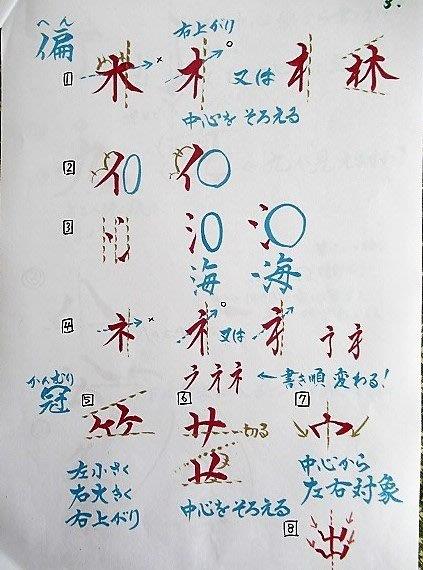 3.
へん
偏
右上がり
1 木 × 木 ○ 又は 木 林
中心を そろえる
2 イ イ
3 氵 氵 氵
海 海
4 ネ × ネ ○ 又は ネ ネ ネ
ラ ネ ネ ← 書き順 変わる!
かんむり
冠
5 6 7
竹 サ 切る 宀
左小さく
右大きく
右上がり
中心をそろえる
中心から
左右対象
8
出